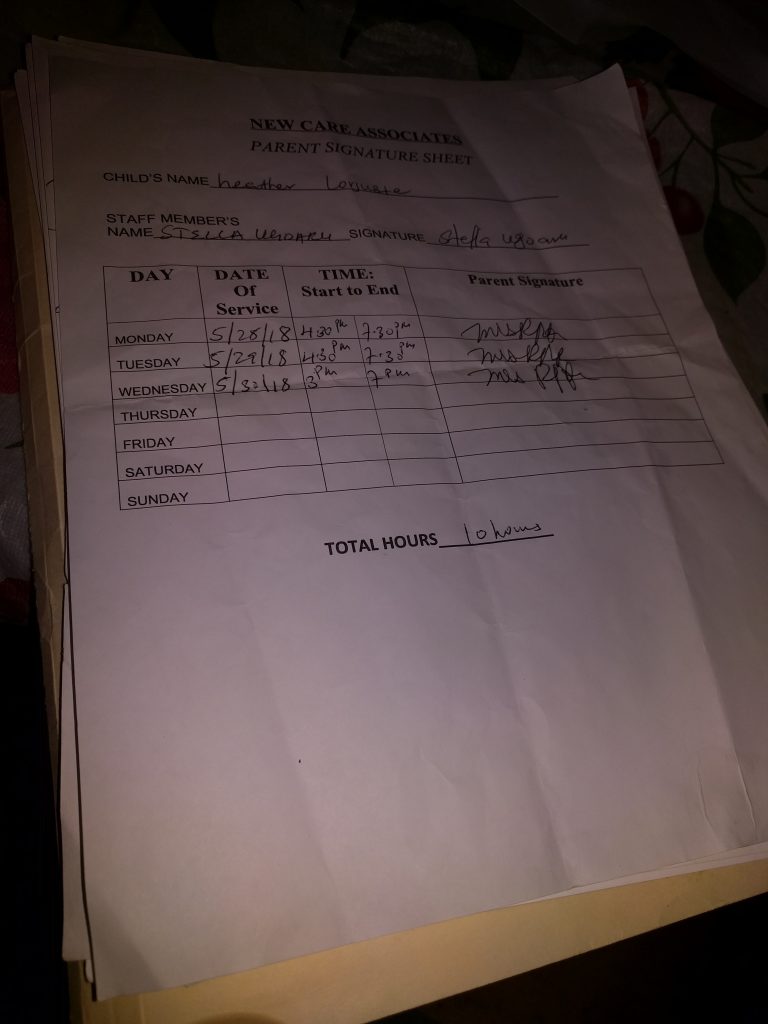 NEW CARE ASSOCIATES
PARENT SIGNATURE SHEET
CHILD'S NAME heather
STAFF MEMBER'S
NAME STELLA UGOARU SIGNATURE Stella Ugoaru
DAY DATE Of Service TIME: Start to End Parent Signature
MONDAY 5/28/18 4.30pm 7.30pm
TUESDAY 5/29/18 4.30pm 7.30pm
WEDNESDAY 5/30/18 3pm 7pm
THURSDAY
FRIDAY
SATURDAY
SUNDAY
TOTAL HOURS 10 hours